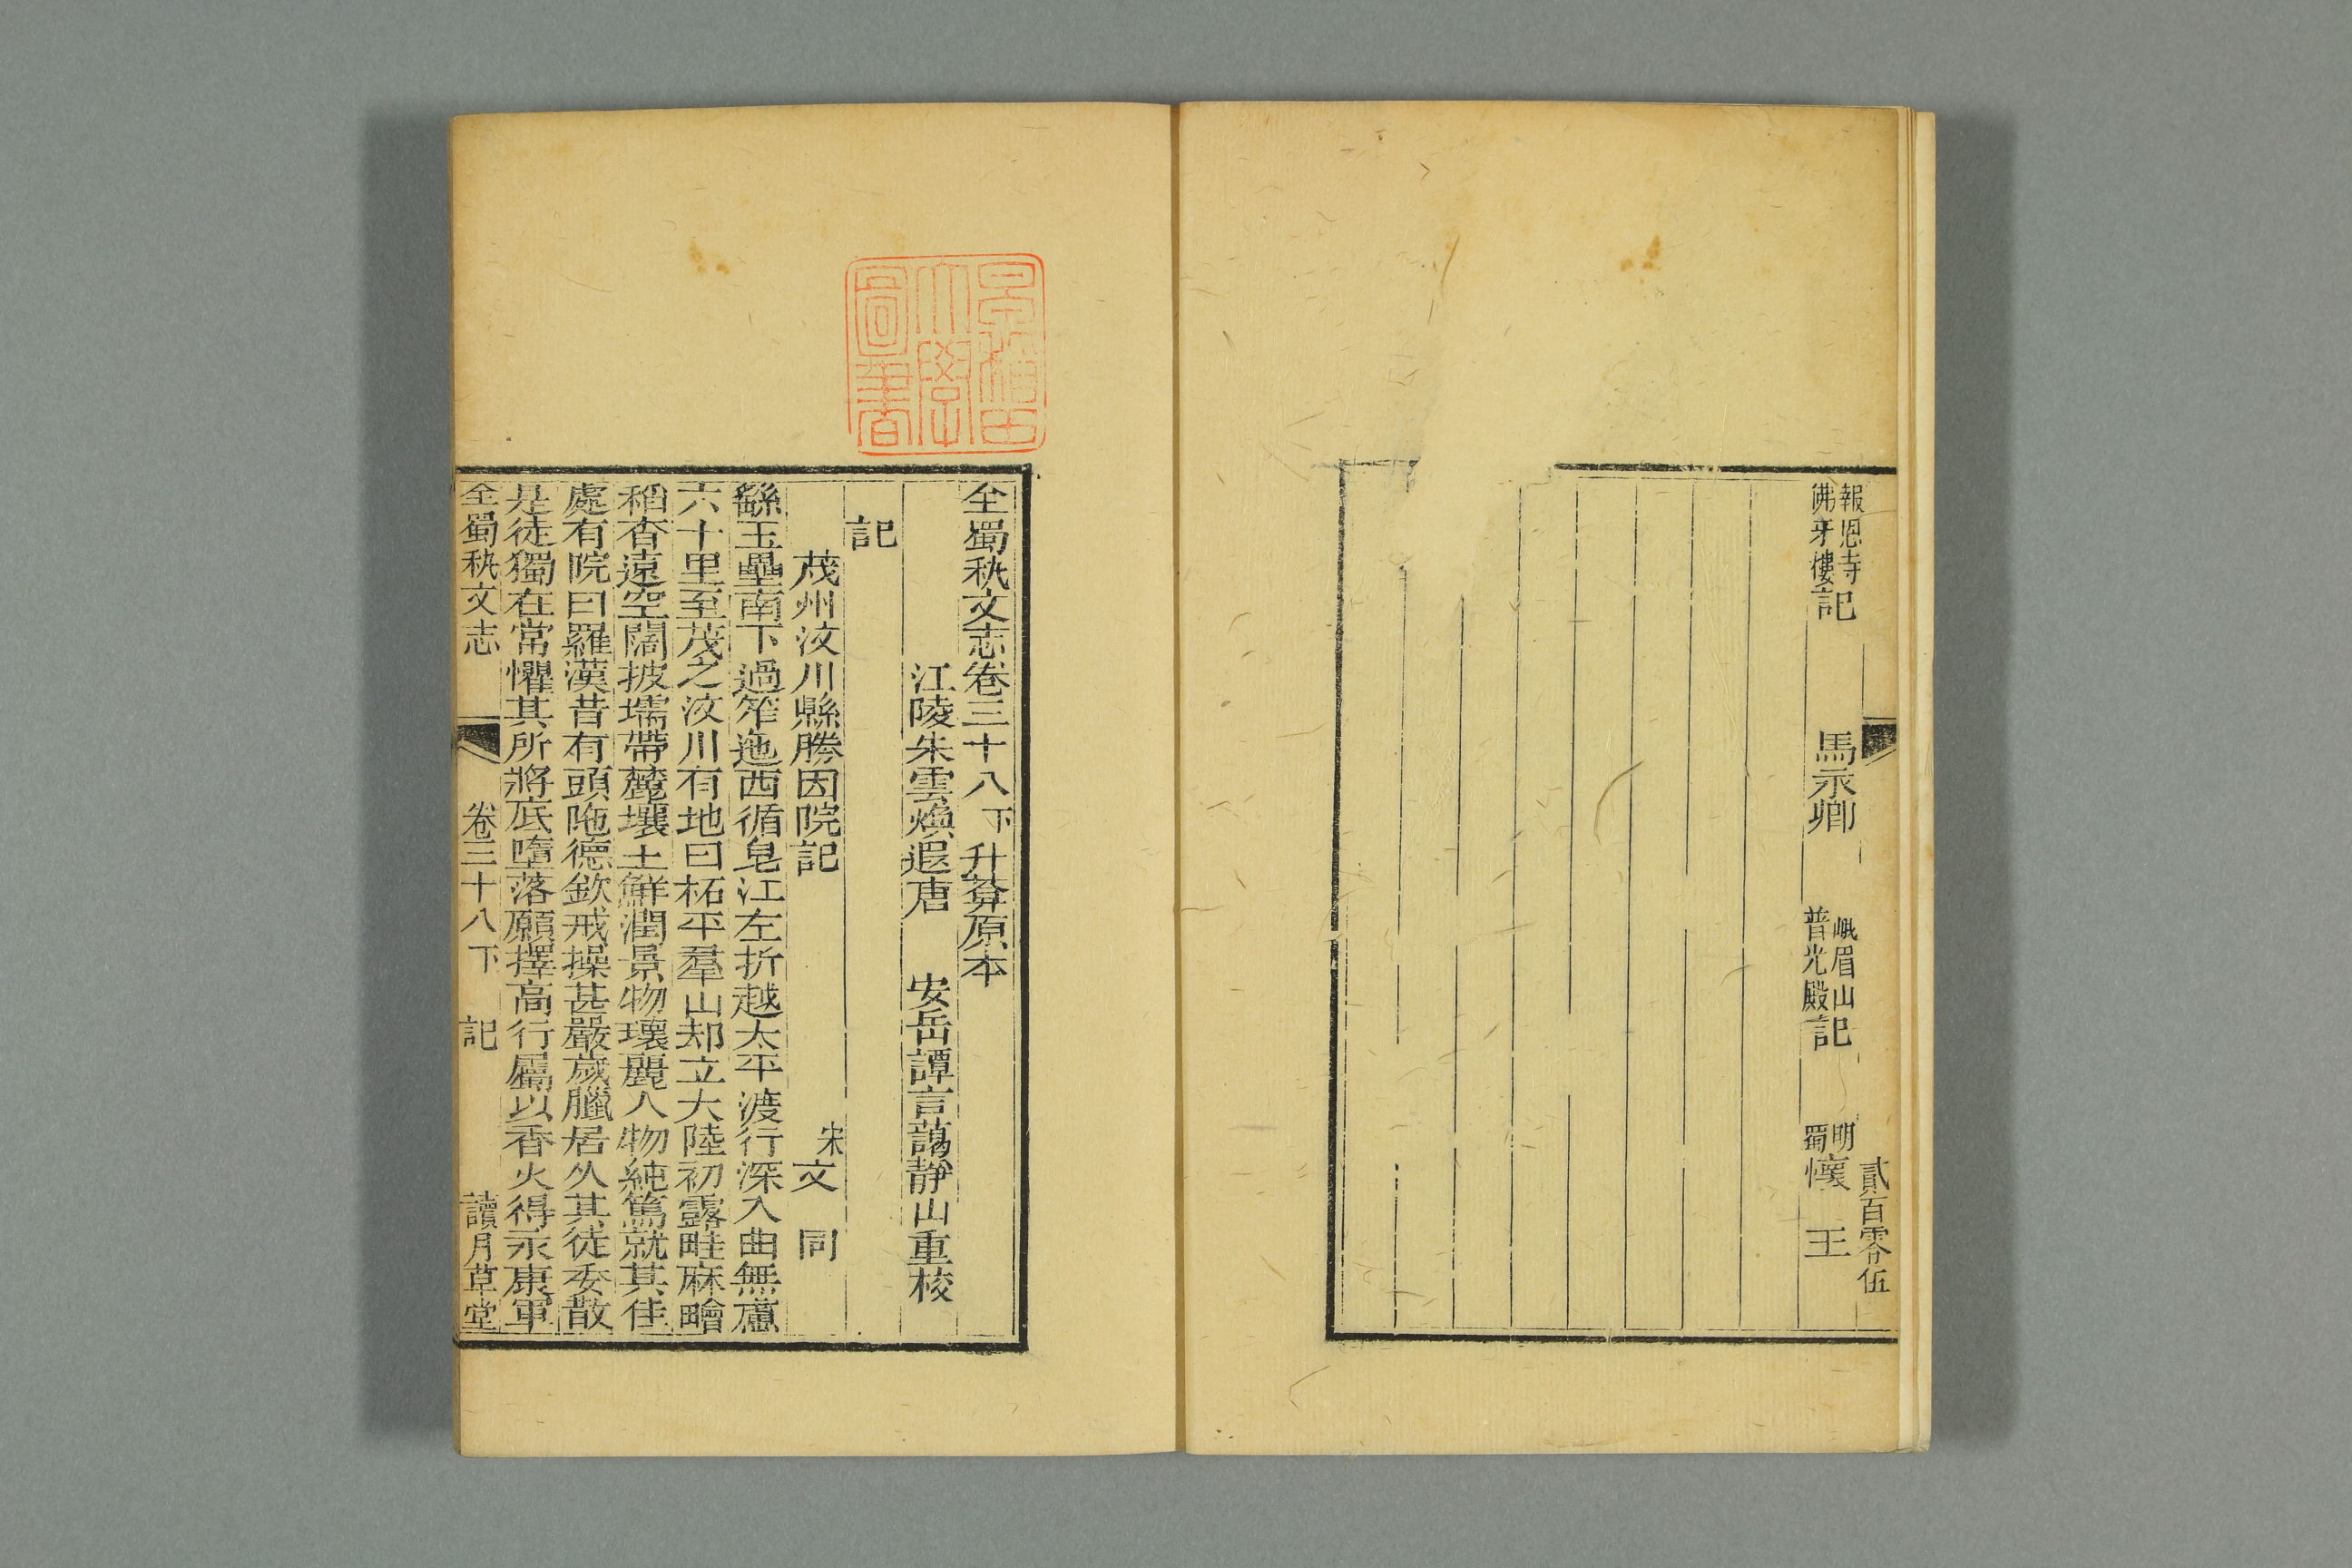 貳百零伍
報恩寺
佛牙樓記
馬永卿
峨眉山
普光殿記
明
蜀懷王
早稲田
大學
圖書
全蜀秇文志卷三十八下 升菴原本
江陵朱雲煥遐唐 安岳譚言藹靜山重校
記
茂州汶川縣勝因院記 宋文同
繇玉壘南下過笮迤西循皂江左折越太平渡行深入曲無慮
六十里至茂之汶川有地曰柘平羣山却立大陸初露畦麻疄
稻杳遠空闊披壖帶麓壤土鮮潤景物瓌麗人物純篤就其佳
處有院曰羅漢昔有頭陁德欽戒操甚嚴歲臘居久其徒委散
是徒獨在常懼其所將底墮落願擇高行屬以香火得永康軍
全蜀秇文志 卷三十八下 記 讀月草堂